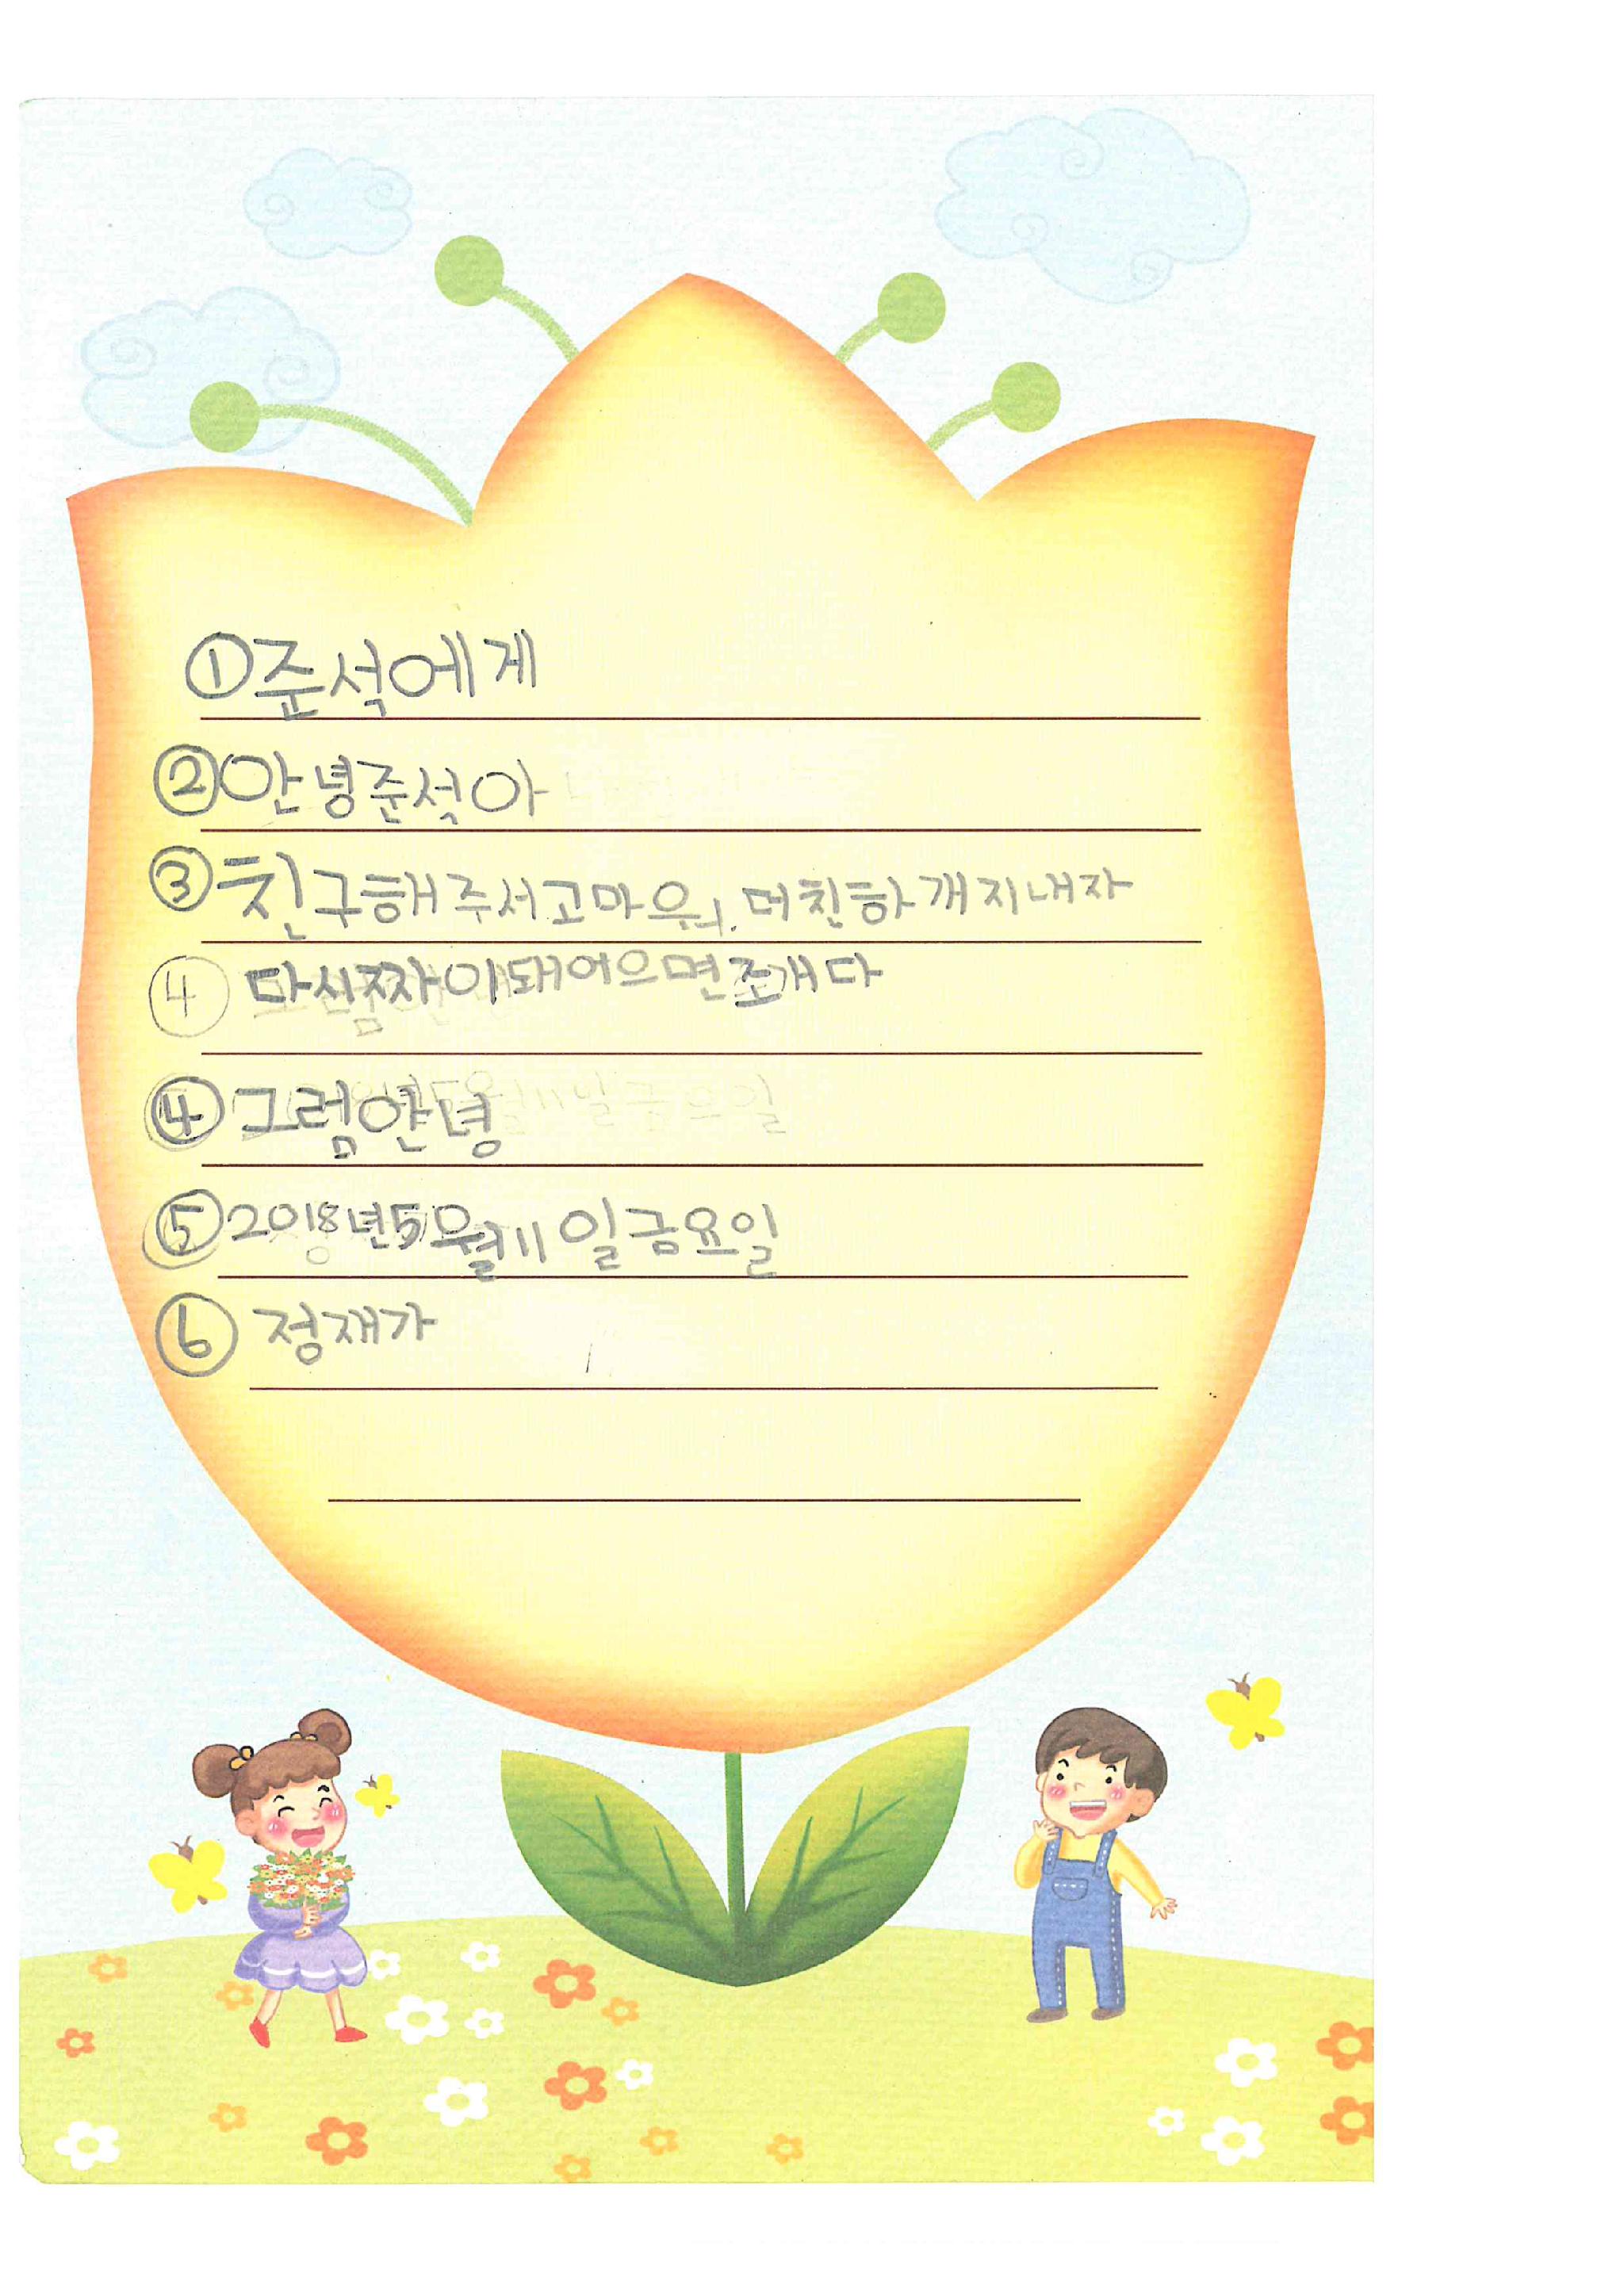 ①준석에게
②안녕준석아
③친구해주서고마워. 더친하개지내자
④ 다시짝이돼어으면조개다
④그럼안녕
⑤2018년5월11일금요일
⑥ 정재가